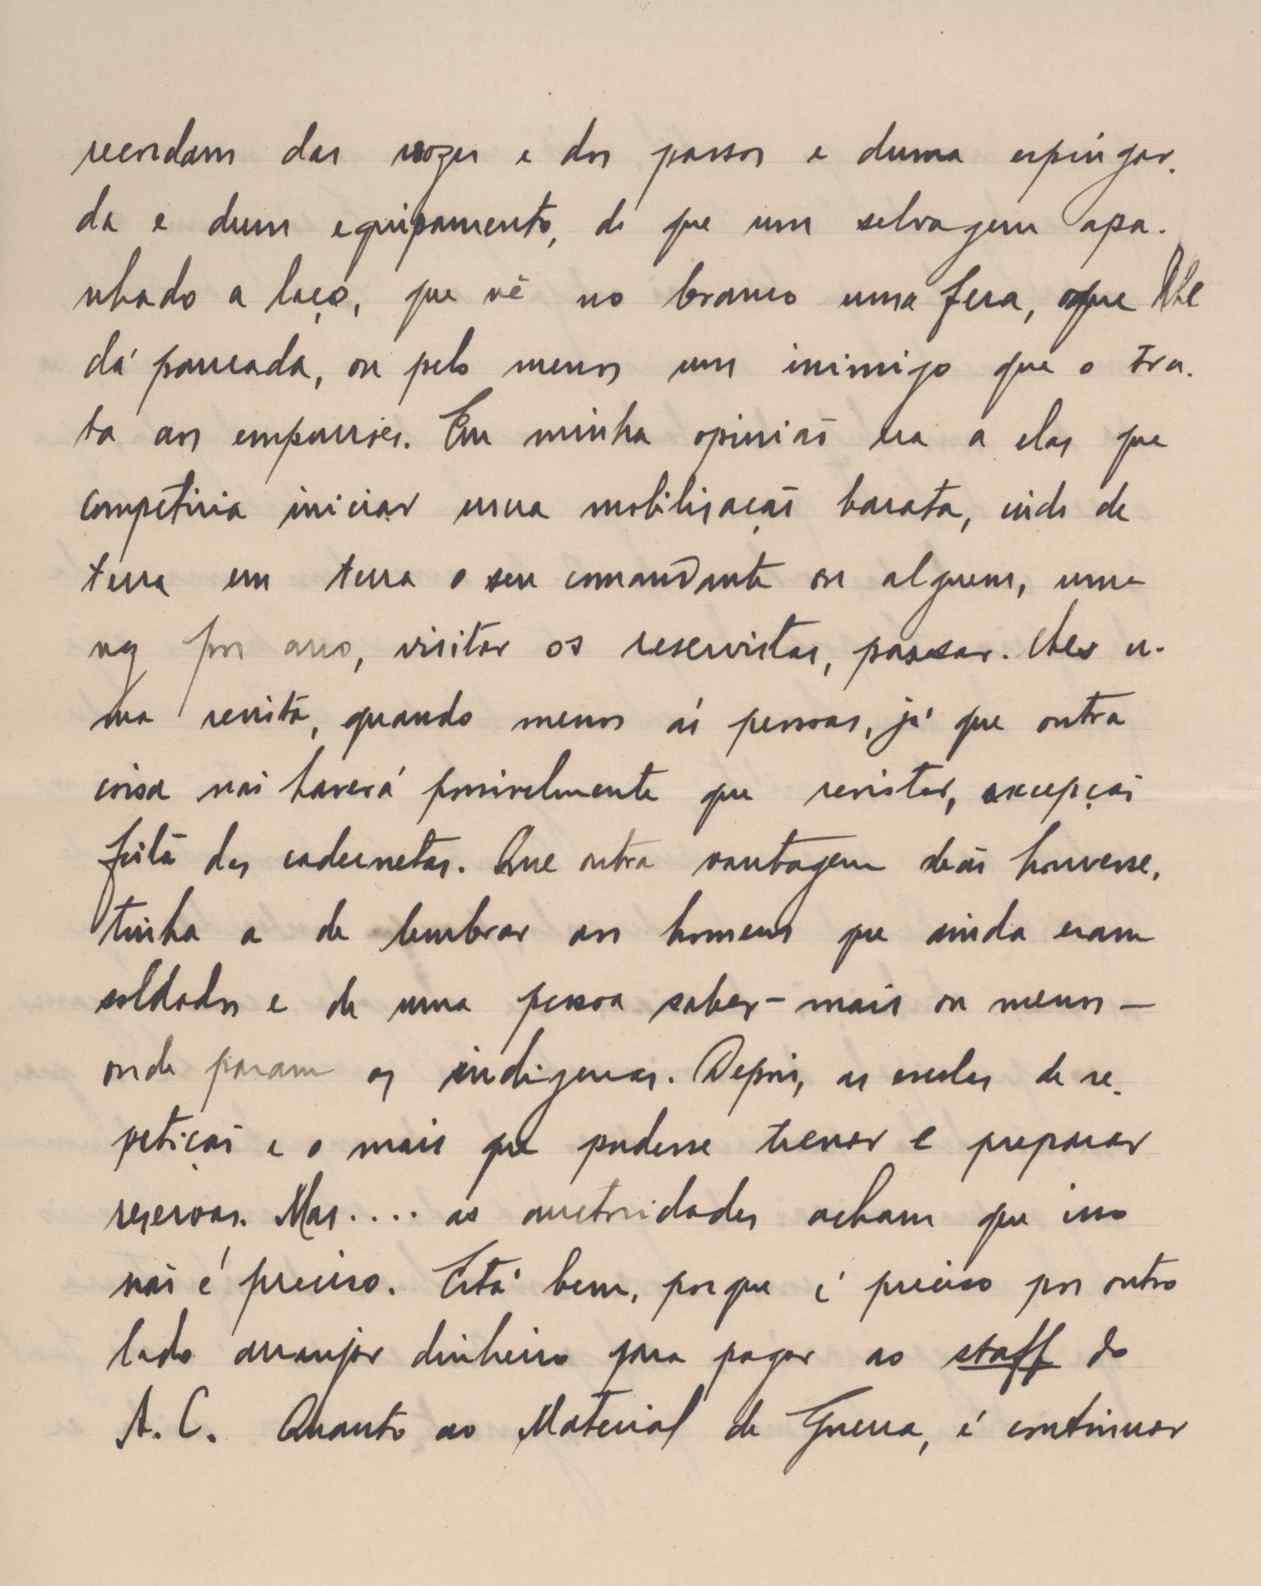 recordam das vozes e dos passos e duma espingar-
da e dum equipamento, do que um selvagem apa-
nhado a laço, que vê no branco uma fera, que lhe
dá pancada, ou pelo menos um inimigo que o tra-
ta aos empurrões. Em minha opinião era a elas que
competiria iniciar uma mobilisação barata, indo de
terra em terra o seu comandante ou alguem, uma
vez por ano, visitar os reservistas, passar-lhes u-
ma revista, quando menos ás pessoas, já que outra
coisa não haverá possivelmente que revistar, excepção
feita das cadernetas. Que outra vantagem não houvesse,
tinha a de lembrar aos homens que ainda eram
soldados e de uma pessoa saber - mais ou menos -
onde param os indigenas. Depois, as escolas de re-
petição e o mais que pudesse treinar e preparar
reservas. Mas.... as auctoridades acham que isso
não é preciso. Está bem, porque é preciso por outro
lado arranjar dinheiro para pagar ao staff do
A. C. Quanto ao Material de Guerra, é continuar